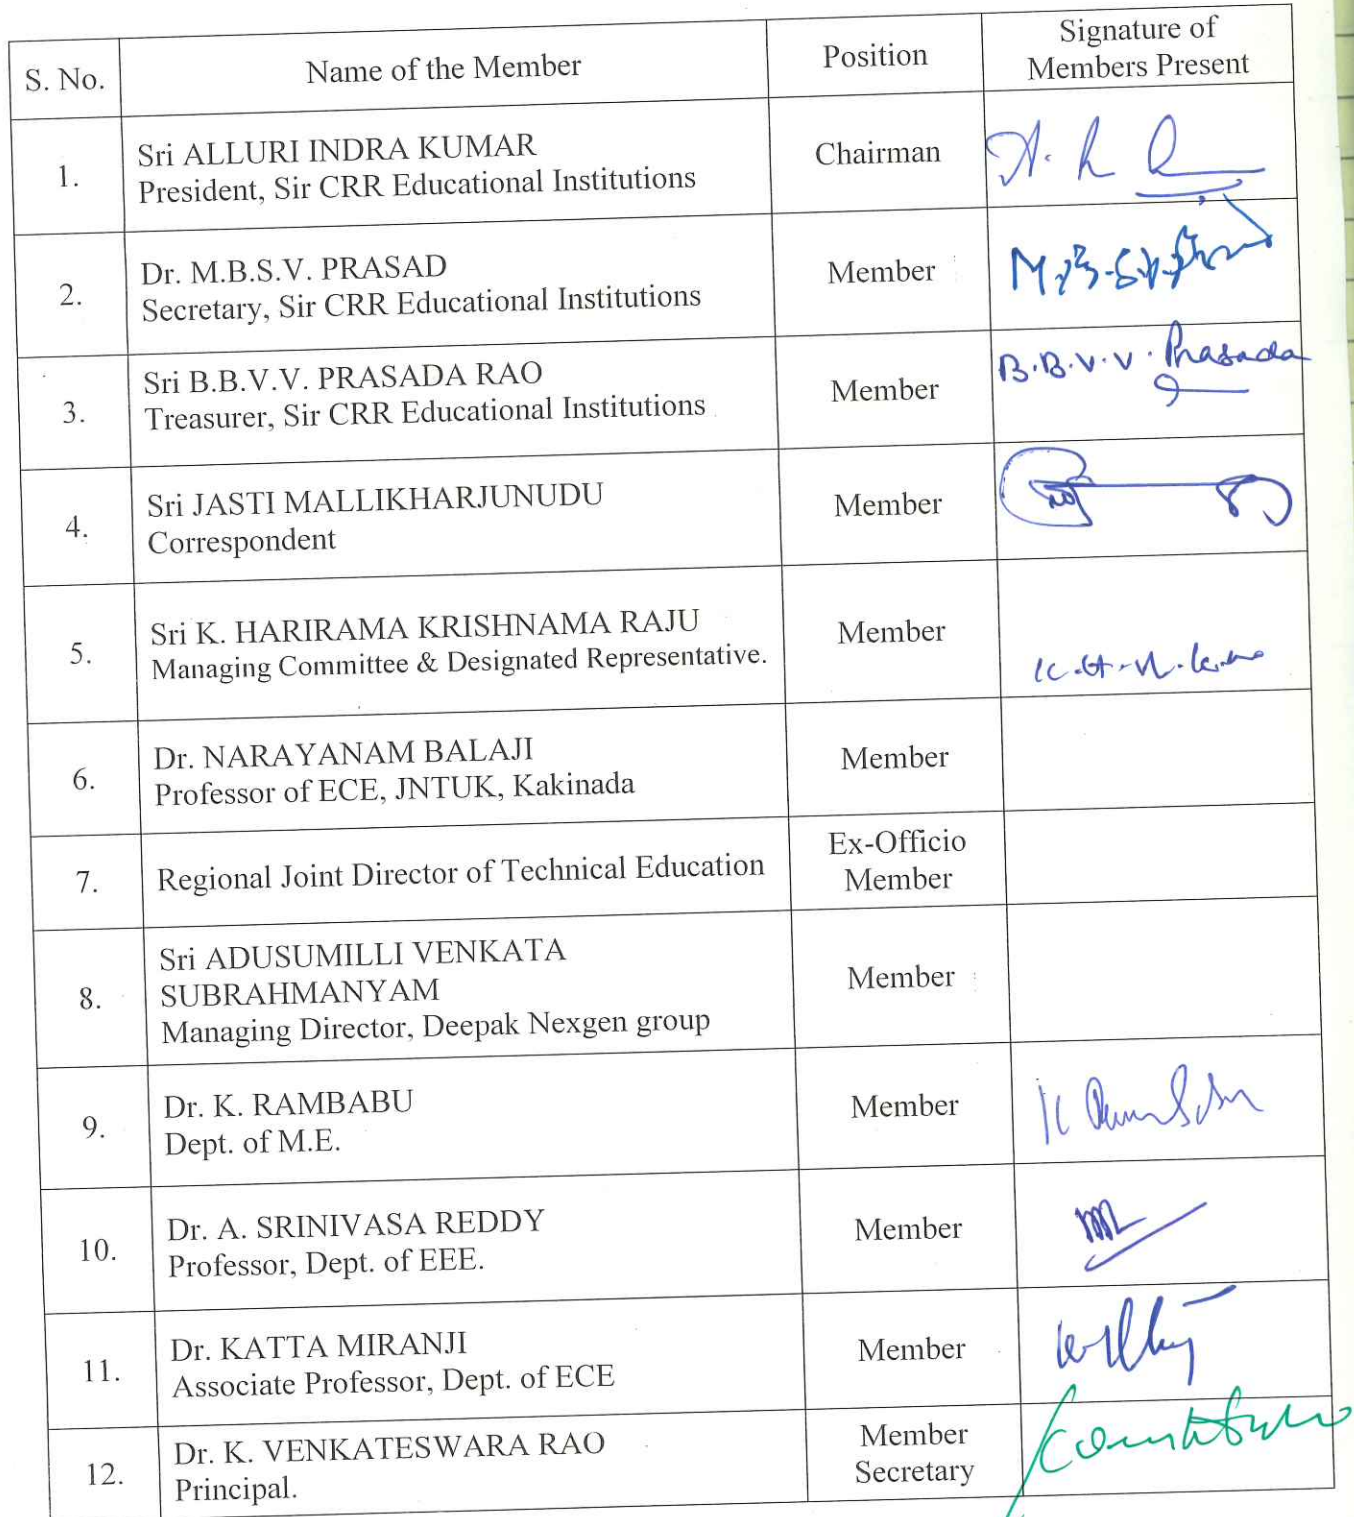 S. No.
Name of the Member
Position
Signature of
Members Present
1.
Sri ALLURI INDRA KUMAR
President, Sir CRR Educational Institutions
Chairman
2.
Dr. M.B.S.V. PRASAD
Secretary, Sir CRR Educational Institutions
Member
M.B.S.V. Prasad
3.
Sri B.B.V.V. PRASADA RAO
Treasurer, Sir CRR Educational Institutions
Member
B.B.V.V. Prasada
4.
Sri JASTI MALLIKHARJUNUDU
Correspondent
Member
5.
Sri K. HARIRAMA KRISHNAMA RAJU
Managing Committee & Designated Representative.
Member
6.
Dr. NARAYANAM BALAJI
Professor of ECE, JNTUK, Kakinada
Member
7.
Regional Joint Director of Technical Education
Ex-Officio
Member
8.
Sri ADUSUMILLI VENKATA
SUBRAHMANYAM
Managing Director, Deepak Nexgen group
Member
9.
Dr. K. RAMBABU
Dept. of M.E.
Member
10.
Dr. A. SRINIVASA REDDY
Professor, Dept. of EEE.
Member
11.
Dr. KATTA MIRANJI
Associate Professor, Dept. of ECE
Member
12.
Dr. K. VENKATESWARA RAO
Principal.
Member
Secretary